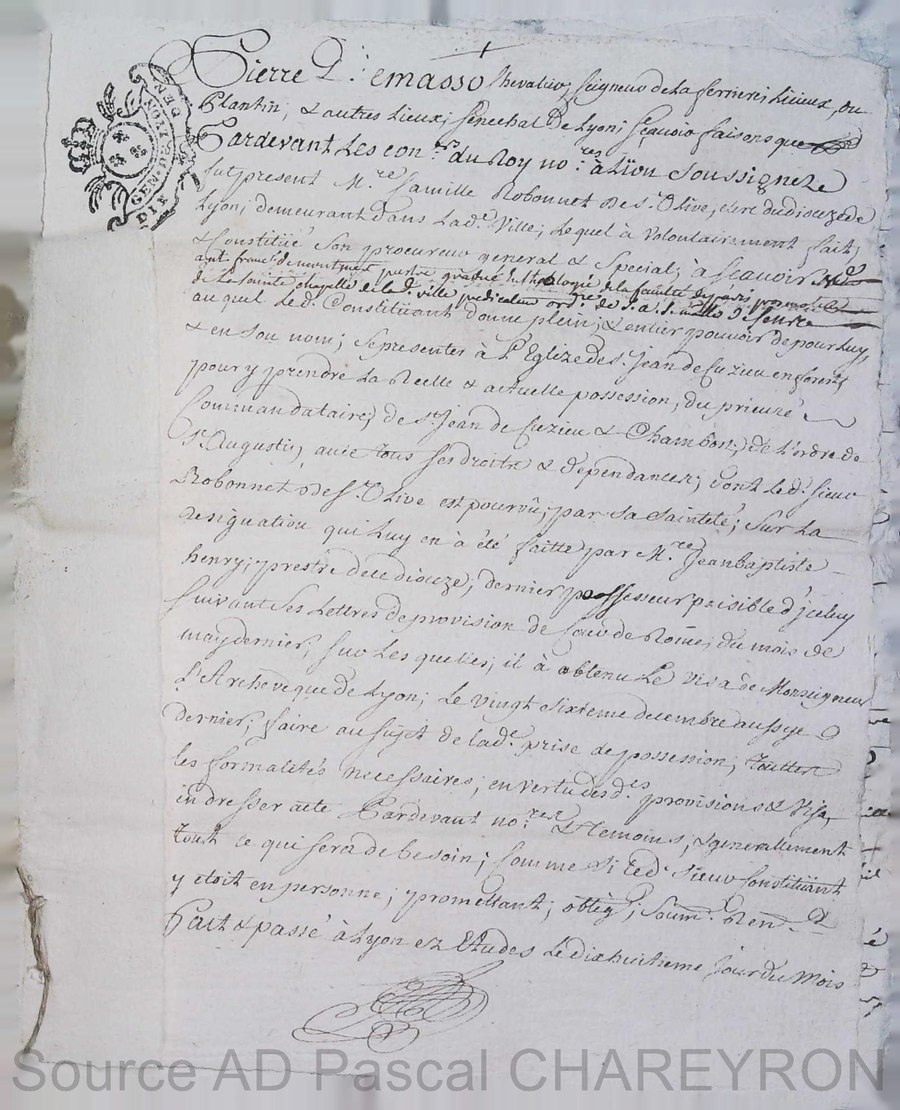 Pierre D. emasso Chevalier, Seigneur de La ferriere, Lieieux, ou
Plantin, & autres Lieux, Senechal De Lyon, Sçauoir faisons que
Pardevant Les con.rs du Roy no.res à Lÿon Soussignez
fut present M.re Camille Robonnet De S.t Olive, clerc du diocéze de
Lyon, demeurant dans Lad.e Ville, Lequel à volontairement fait,
& Constitüé Son procureur general & Special, à Scauoir
de La Sainte chapelle de lad. ville
auquel Led. Constituant donne plein, & entier pouvoir de pour Luy,
& en Son nom, Se presenter à L'Eglize de S.t Jean de Cuzieu en forest,
pour y prendre La Réelle & actuelle possession, du prieuré
Commandataire, de S.t Jean de Cuzieu & Chambon, de L'ordre de
S.t Augustin, avec tous Ses droits & dependances, dont Led. Sieur
Robonnet De S.t Olive est pourvû, par Sa Sainteté, Sur La
resignation qui Luy en à été faitte par M.re Jean baptiste
henry, prestre de ce diocéze, dernier possesseur paisible d'jceluy
Suivant Ses Lettres de provision de Cour de Rome, du mois de
may dernier, Sur Les quelles, il à obtenu Le visa de Monseigneur
L'Archevêque de Lyon, Le vingt Sixieme decembre aussy
dernier, faire au Sujet de lad.e prise de possession, touttes
les formalités necessaires, en vertu desd.es provisions & Visa,
en dresser acte Pardevant no.res & Temoins, & generallement
tout ce qui Sera de besoin, Comme Si Led. Sieur Constitüant
y etoit en personne, promettant, oblig, Soum. Ren. &
Fait & passé à Lyon ez Etudes Le dix huitieme Jour du mois
GEN. DE LION
Source AD Pascal CHAREYRON